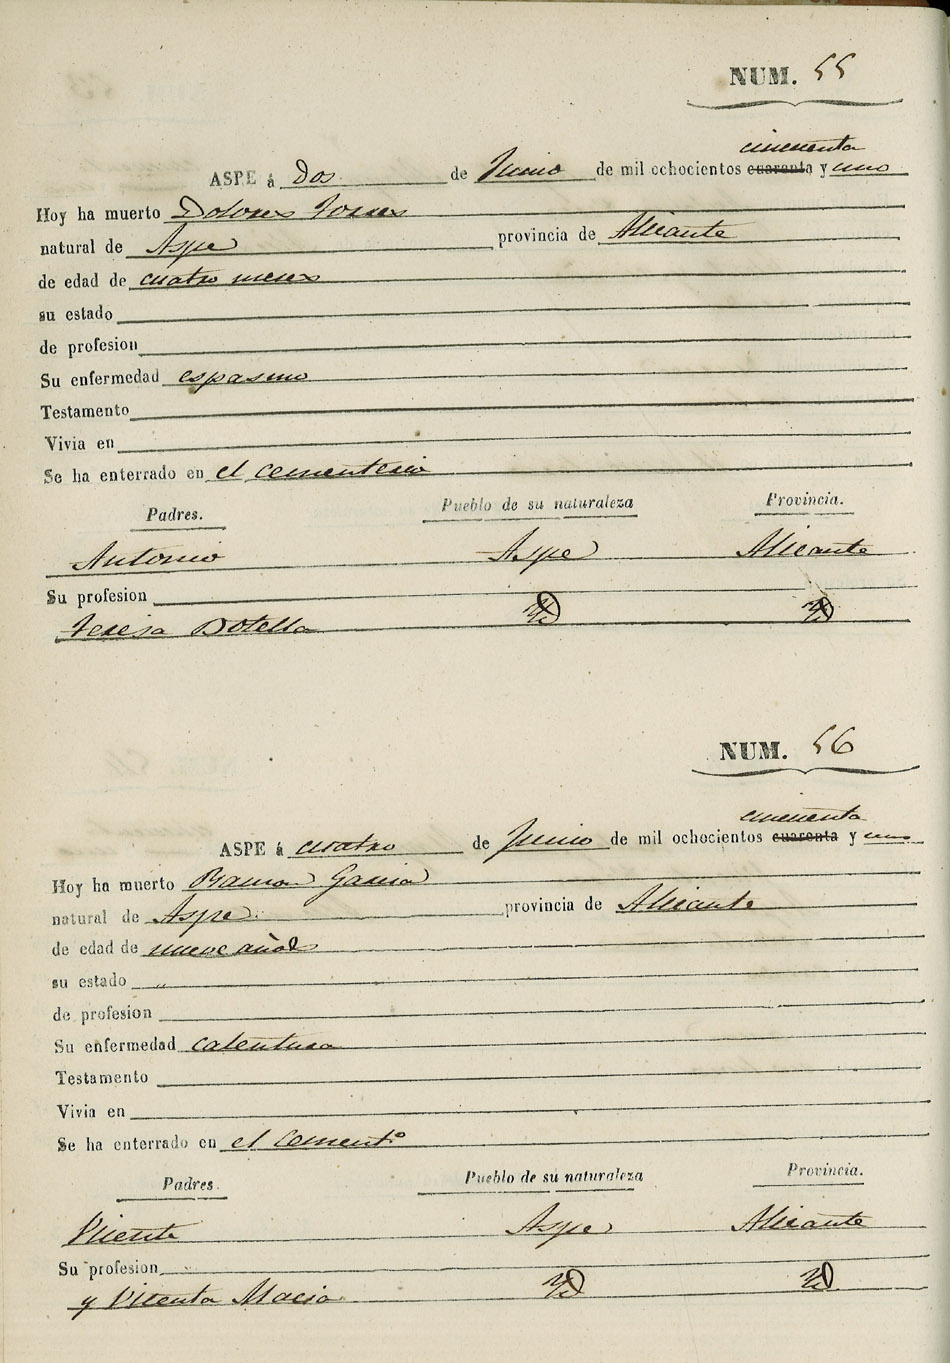 NUM. 55
cincuenta
ASPE á Dos de Junio de mil ochocientos cuarenta y uno
Hoy ha muerto Dolores Torres
natural de Aspe provincia de Alicante
de edad de cuatro meses
su estado
de profesion
Su enfermedad espasmo
Testamento
Vivia en
Se ha enterrado en el cementerio
Padres. Pueblo de su naturaleza Provincia.
Antonio Aspe Alicante
Su profesion
Teresa Botella Yd Yd
NUM. 56
cincuenta
ASPE á cuatro de Junio de mil ochocientos cuarenta y uno
Hoy ha muerto Ramon Garcia
natural de Aspe provincia de Alicante
de edad de nueve años
su estado "
de profesion
Su enfermedad calentura
Testamento
Vivia en
Se ha enterrado en el Cementº
Padres. Pueblo de su naturaleza Provincia.
Vicente Aspe Alicante
Su profesion
y Vicenta Macia Yd Yd